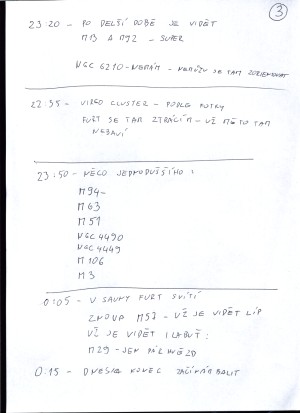 3
23:20 - PO DELŠÍ DOBĚ JE VIDĚT
M13 A M92 - SUPER
NGC 6210 - NEMÁM - NEMŮŽU SE TAM ZORIENTOVAT
22:35 - VIRGO CLUSTER - PODLE FOTKY
FURT SE TAM ZTRÁCÍM - UŽ MĚ TO TAM
NEBAVÍ
23:50 - NĚCO JEDNODUŠŠÍHO :
M94 -
M63
M51
NGC 4490
NGC 4449
M106
M3
0:05 - V SAUNY FURT SVÍTÍ
ZNOVA M57 - UŽ JE VIDĚT LÍP
UŽ JE VIDĚT I LABUŤ :
M29 - JEN PÁR HVĚZD
0:15 - DNESKA KONEC ZAČÍNÁM BALIT